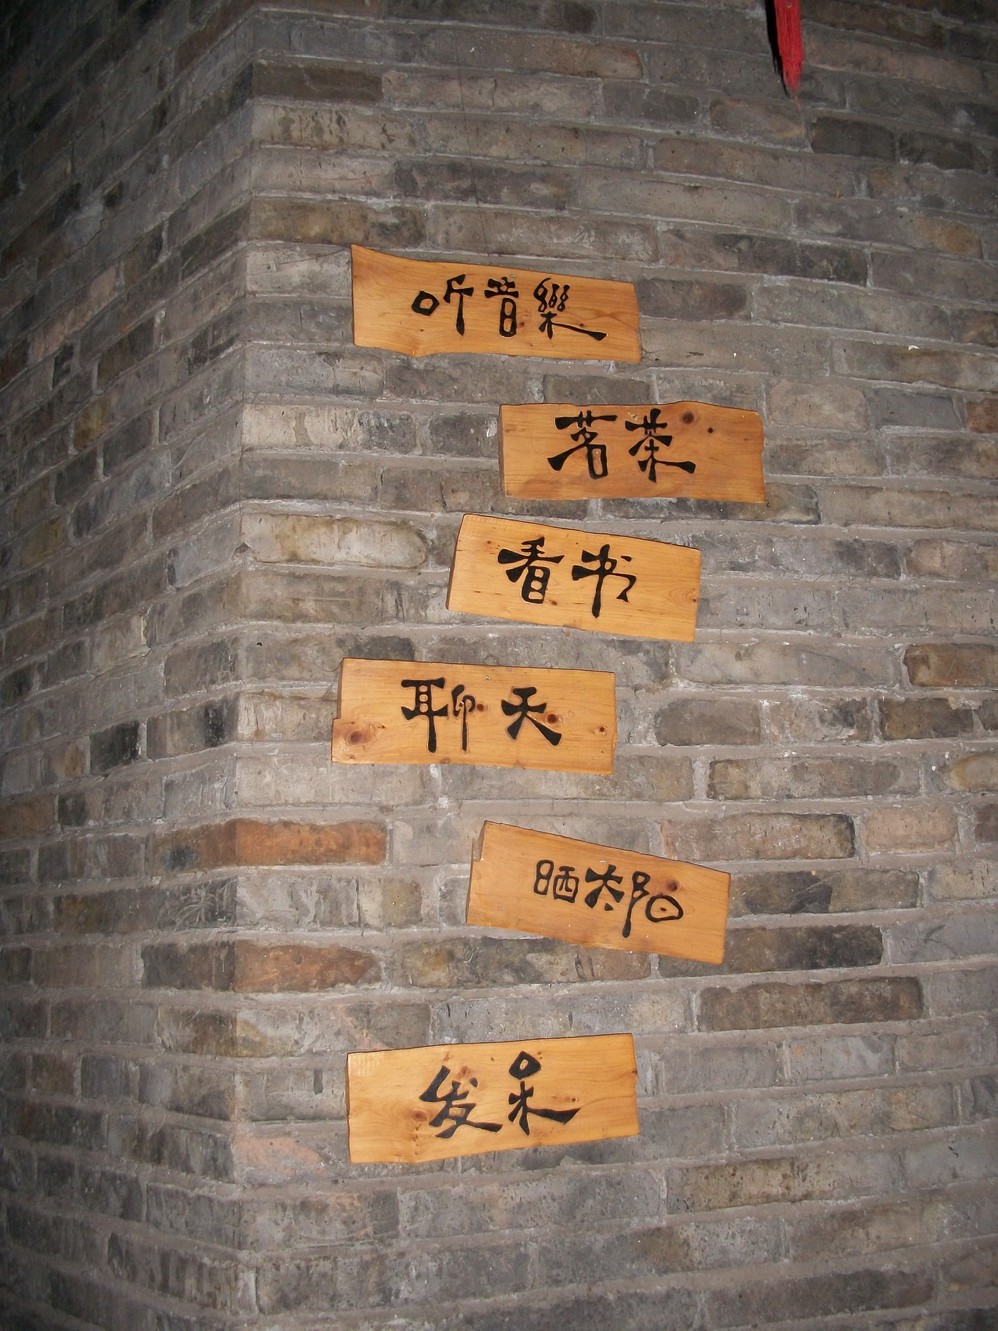 听音樂
茗茶
看书
聊天
晒太阳
发呆